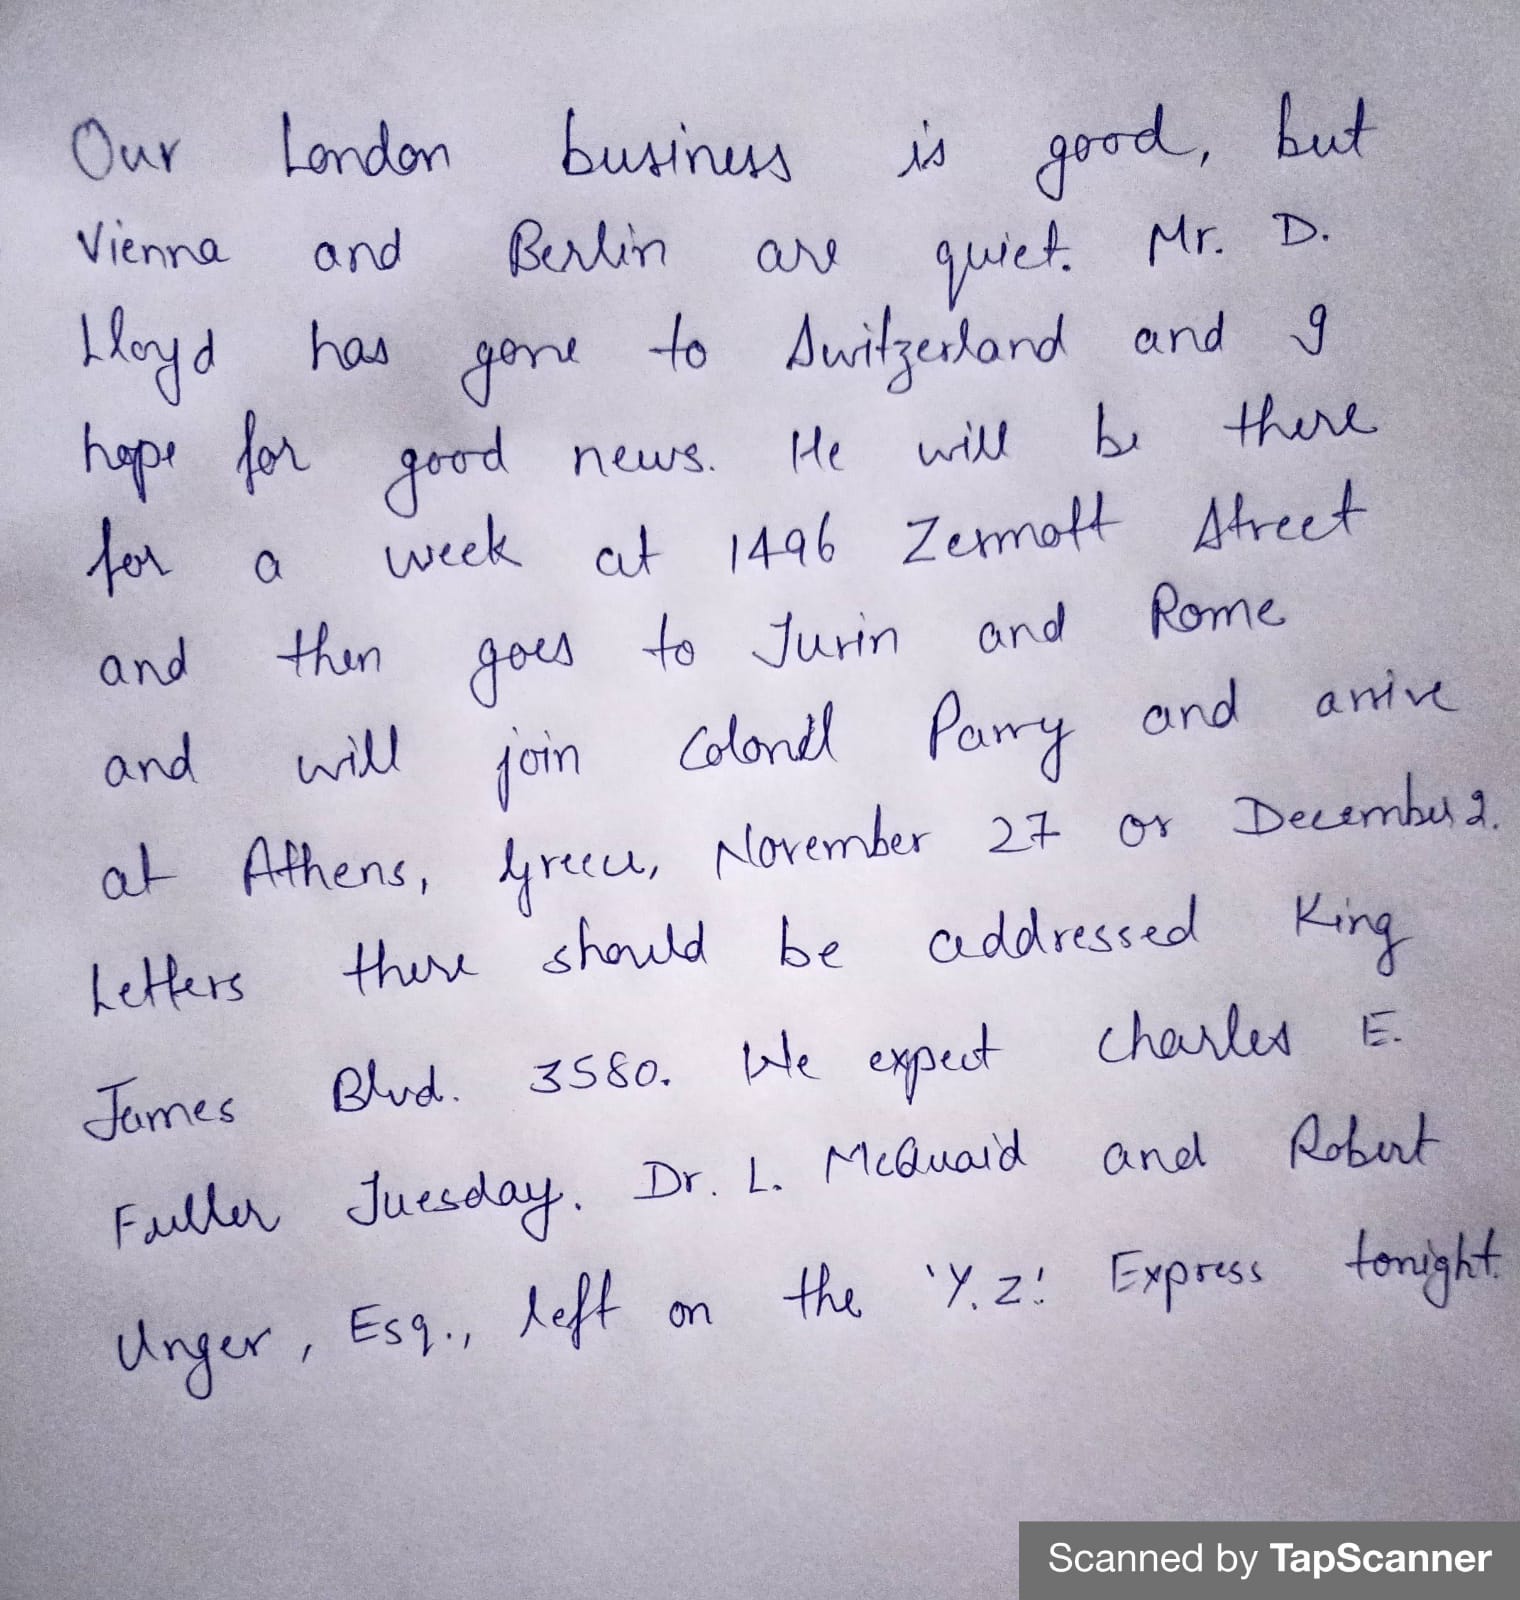 Our London business is good, but
Vienna and Berlin are quiet. Mr. D.
Lloyd has gone to Switzerland and I
hope for good news. He will be there
for a week at 1496 Zermott Street
and then goes to Turin and Rome
and will join Colonel Parry and arrive
at Athens, Greece, November 27 or December 2.
Letters there should be addressed King
James Blvd. 3580. We expect Charles E.
Fuller Tuesday. Dr. L. McQuaid and Robert
Unger, Esq., left on the 'Y.Z.' Express tonight.
Scanned by TapScanner